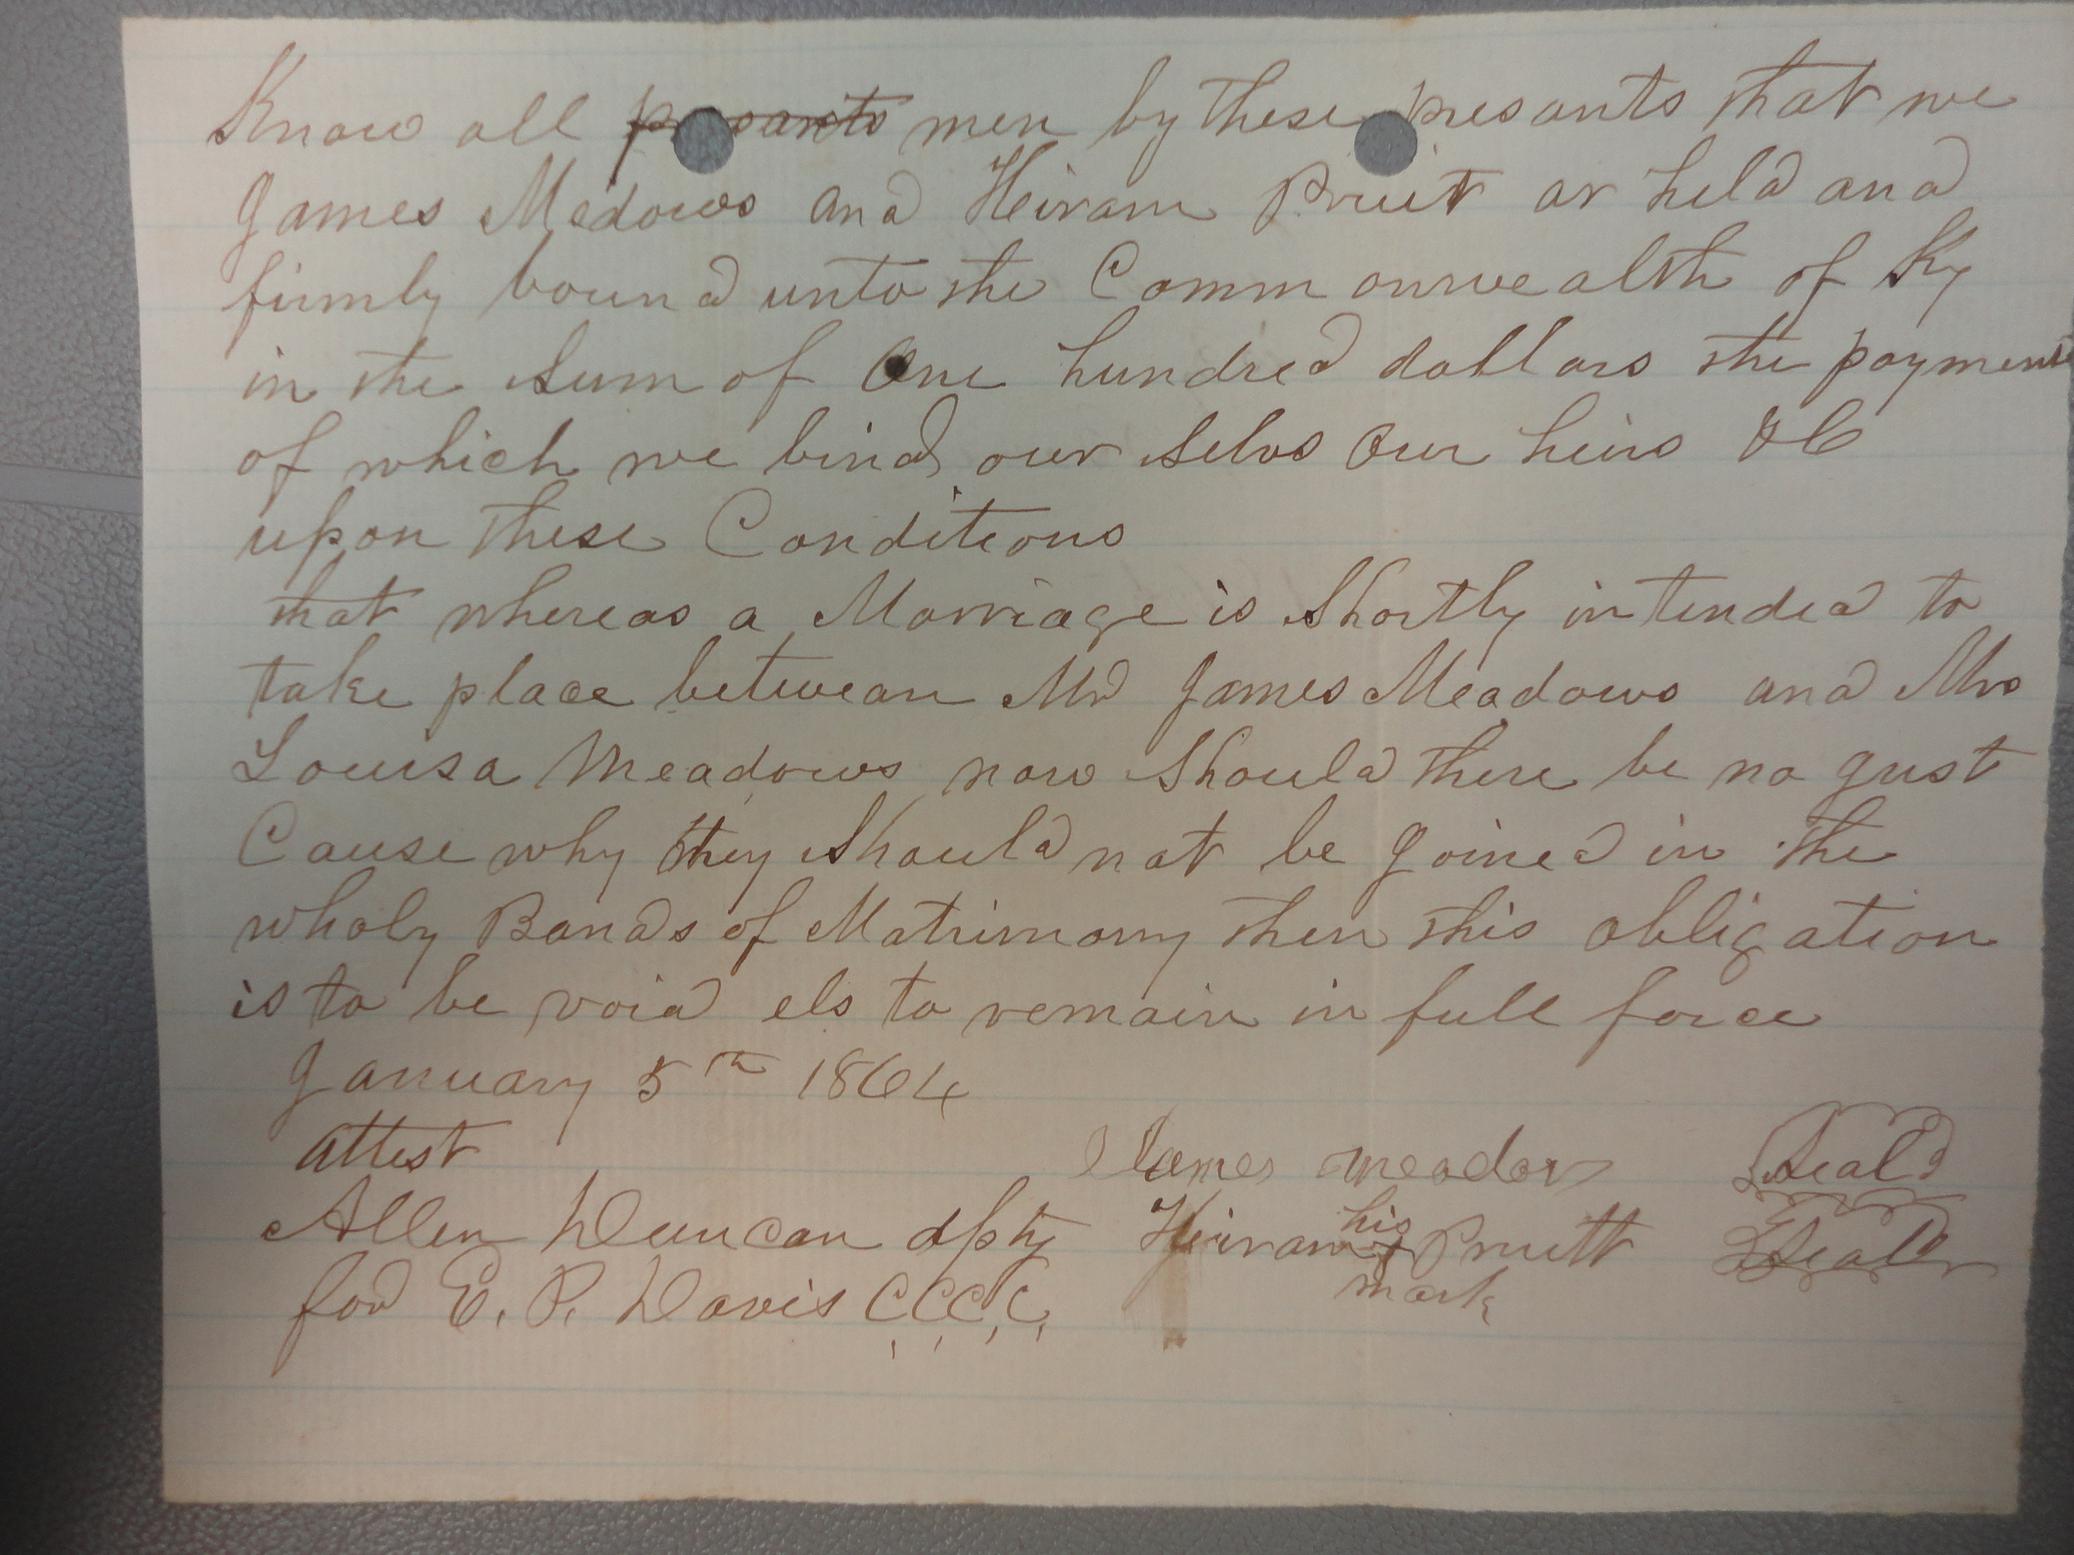 Know all presants men by these presants that we
James Medows and Heiram Pruit ar held and
firmly bound unto the Commonwealth of Ky
in the Sum of One hundred dollars the payment
of which we bind our selvs Our heirs &C
upon these Conditions
that whereas a Marriage is Shortly intended to
take place betwean Mr James Meadows and Mrs
Louisa Meadows now Should there be no just
Cause why they Should not be Joined in the
wholy Bands of Matrimony then this obligation
is to be void els to remain in full force
January 5th 1864
attest James Meadows Seal
Allen Duncan dpty Heiram his x mark Pruitt Seal
for E. P. Davis C.C.C.C.